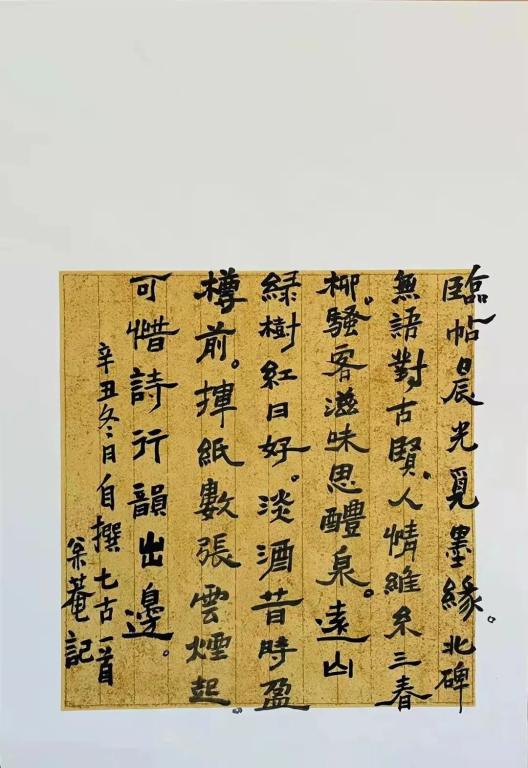 臨帖晨光覓墨緣。北碑
無語對古賢。人情維系三春
柳。騷客滋味思醴泉。遠山
綠樹紅日好。淡酒昔時盈
樽前。揮紙數張雲煙起。
可惜詩行韻出邊。
辛丑冬日自撰七古一首
菴記